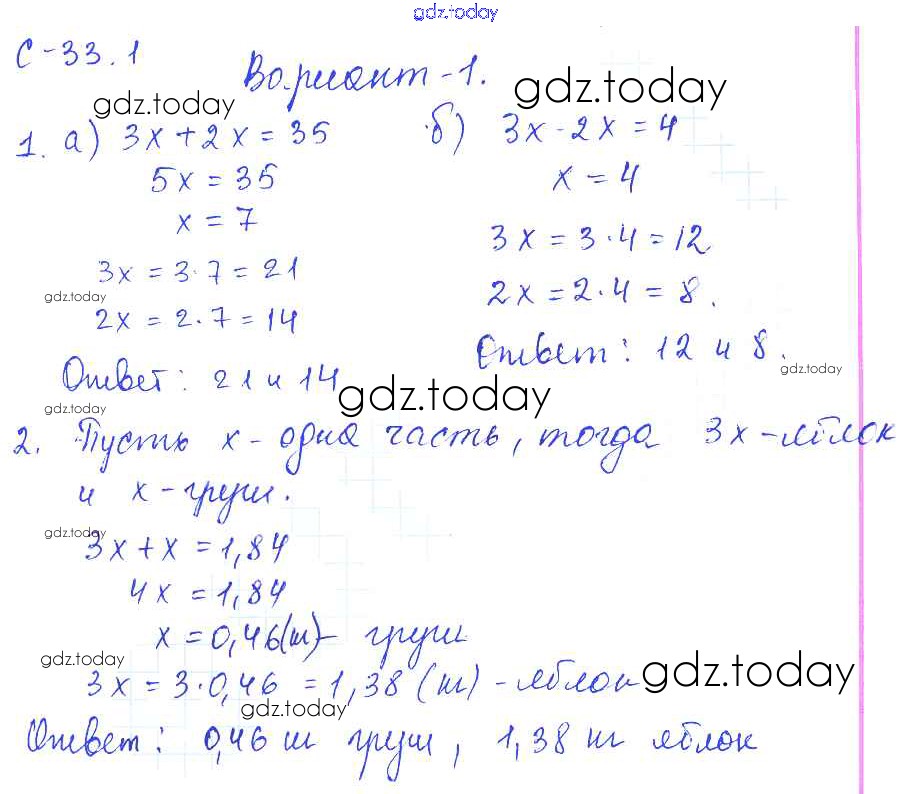 gdz.today
С-33.1
Вариант-1.
gdz.today
gdz.today
1. а) 3x + 2x = 35
5x = 35
x = 7
3x = 3·7 = 21
gdz.today
2x = 2·7 = 14
Ответ: 21 и 14
б) 3x - 2x = 4
x = 4
3x = 3·4 = 12
2x = 2·4 = 8.
Ответ: 12 и 8.
gdz.today
gdz.today
gdz.today
2. Пусть x - одна часть, тогда 3x - яблок
и x - груш.
gdz.today
3x + x = 1,84
4x = 1,84
x = 0,46 (т) - груш
gdz.today
3x = 3·0,46 = 1,38 (т) - яблок
gdz.today
gdz.today
Ответ: 0,46 т груш, 1,38 т яблок